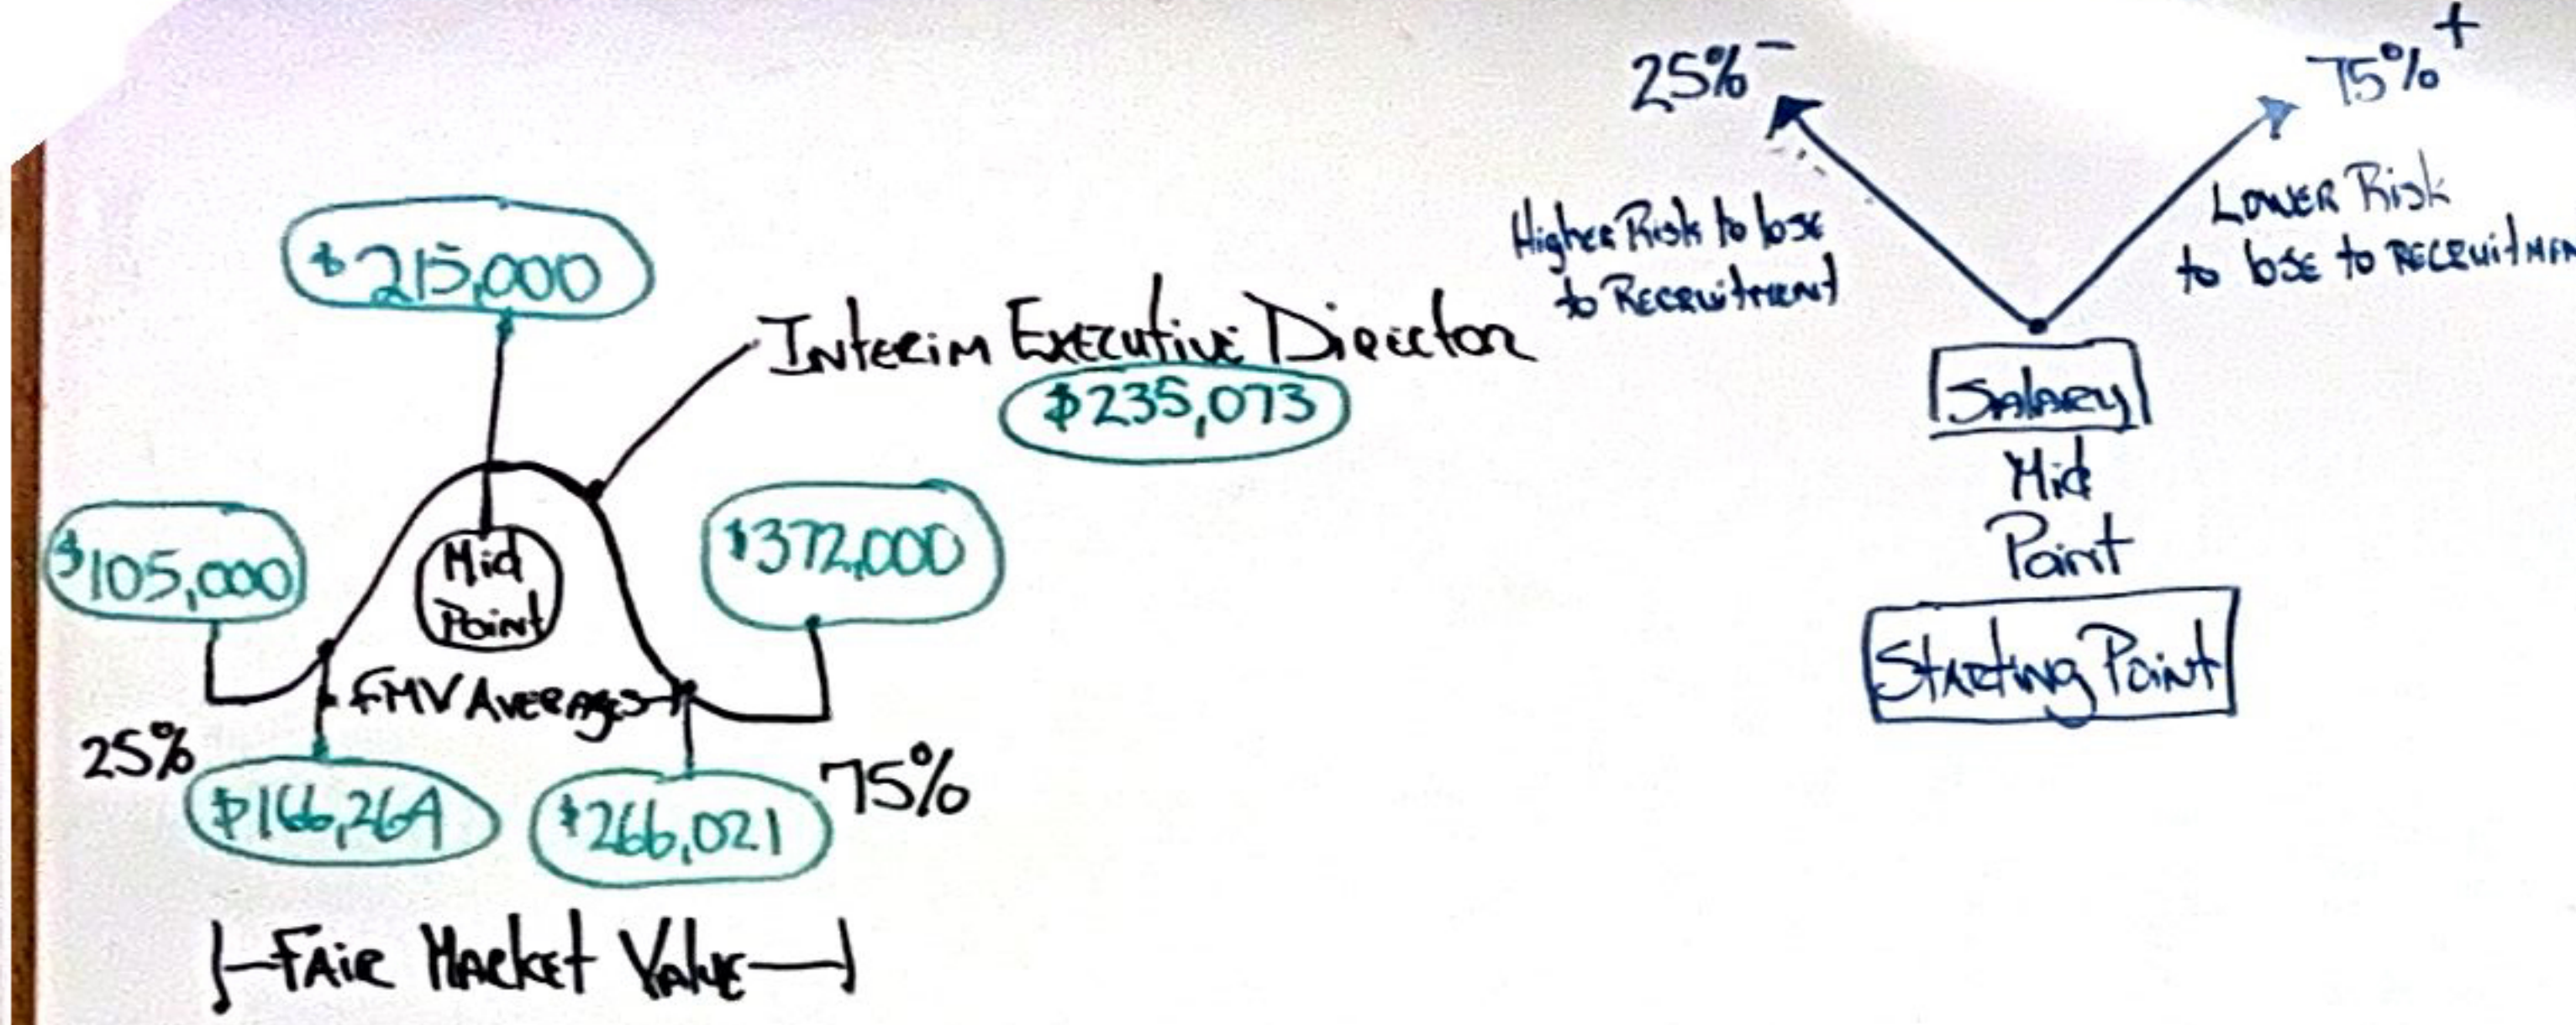 $215,000
Interim Executive Director
$235,073
$105,000
$372,000
Mid
Point
FMV Averages
25%
$166,264
$266,021
75%
Fair Market Value
25% -
75% +
Higher Risk to lose
to Recruitment
Lower Risk
to lose to Recruitmen
Salary
Mid
Point
Starting Point